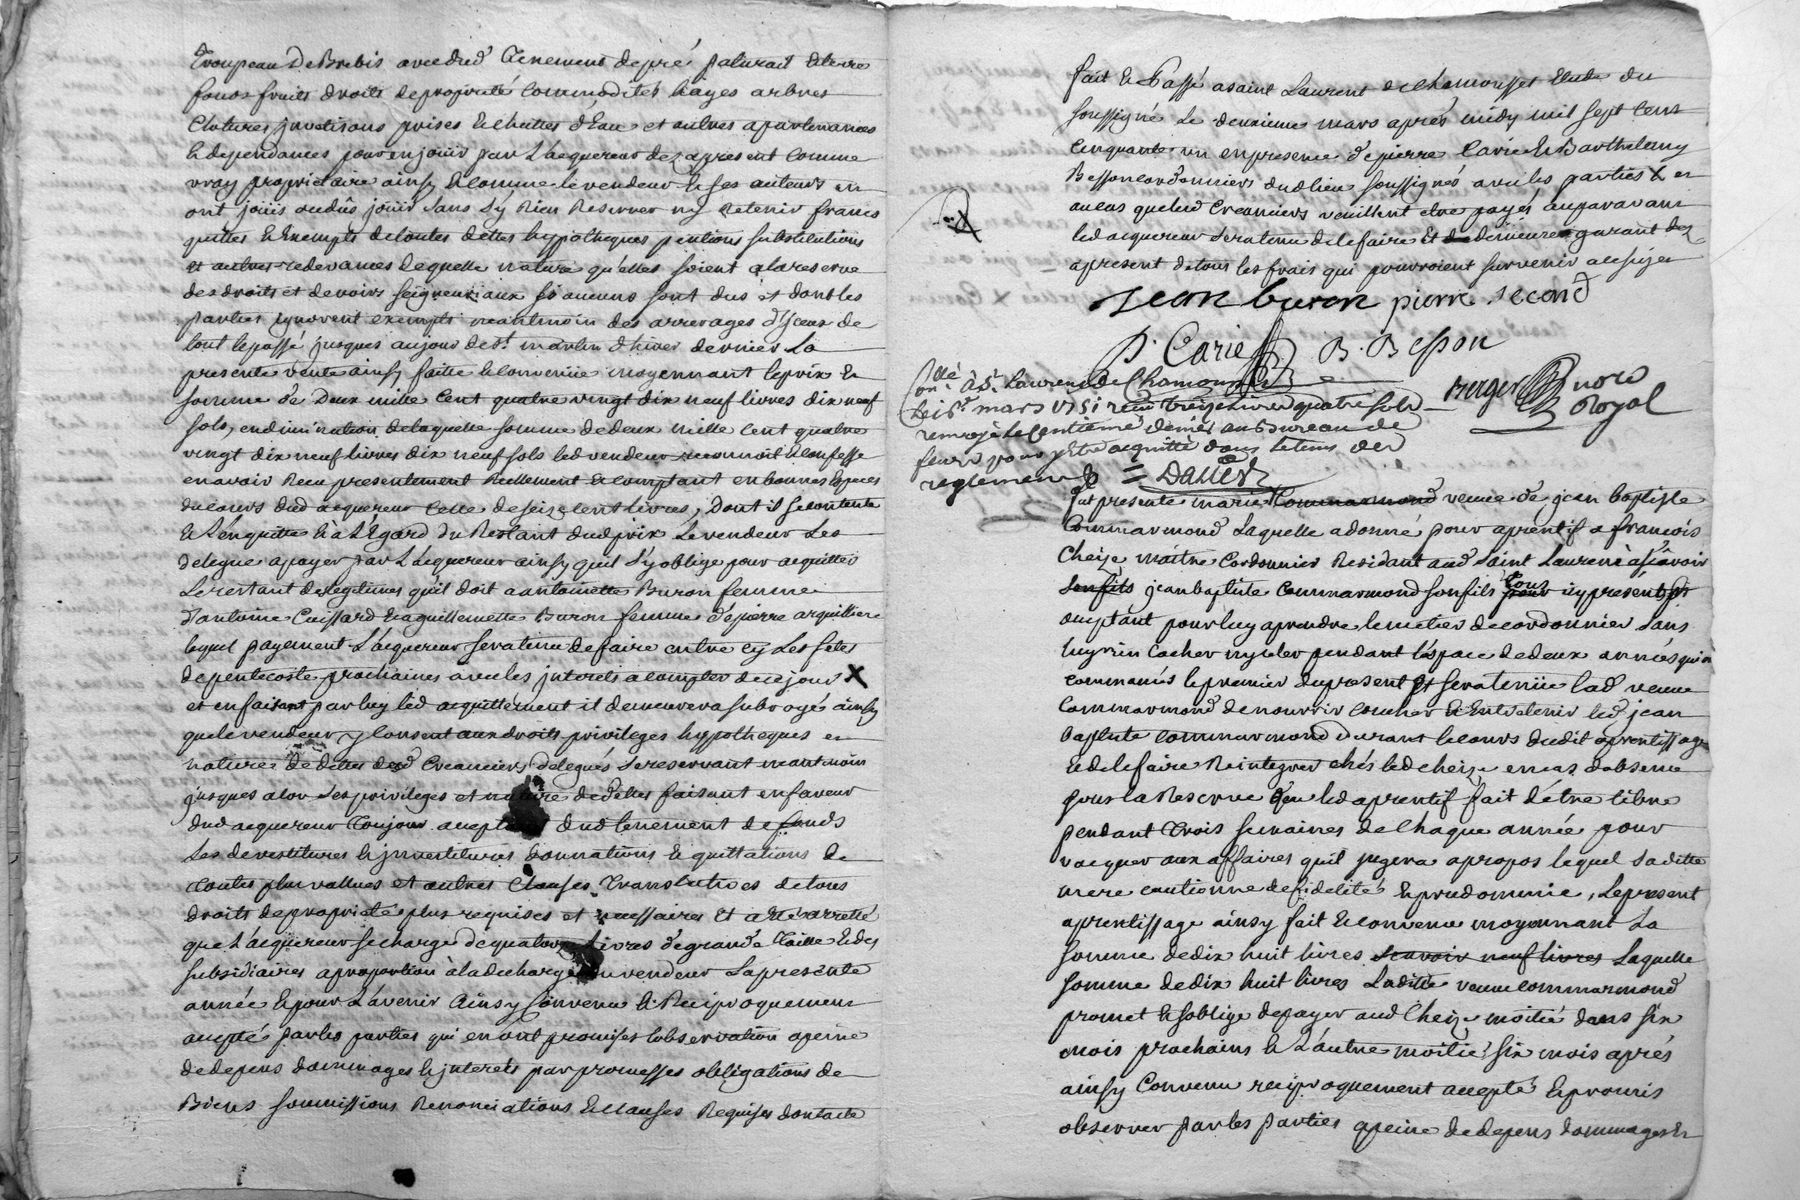 troupeau de Brebis avec dud' tenement de pré paturail & terre
fonds fruits droits de proprieté commodités hayes arbres
clotures jssuës prises & chuttes d'Eau et autres apartenances
& dependances pour en jouir par L'acquereur dez apresent comme
vray proprietaire ainsy & comme le vendeur & ses auteurs en
ont joüis ou dûs joüir sans s'y Rien Reserver ny Retenir francs
quittes & Exempts de toutes dettes hypotheques pentions substitutions
et autres redevances de quelle nature qu'elles soient a la reserve
des droits et devoirs seigneuriaux sy aucuns sont dus et dont les
parties ignorent exempts neantmoin des arrerages d'jceux de
tout le passé jusques au jour de St. martin d'hiver dernier La
presente vente ainsy faitte & convenüe moyennant le prix &
somme de Deux mille cent quatre vingt dix neuf livres dix neuf
sols, en diminution de laquelle somme de deux mille cent quatre
vingt dix neuf livres dix neuf sols led vendeur reconnoit & confesse
en avoir Receu presentement Reellement & comptant en bonnes Especes
du cours dud acquereur celle de seize cent livres, Dont il se contente
& L'en quitte & à L'Egard du Restant dud prix Le vendeur Les
delegue a payer par L'acquereur ainsy qu'il s'y oblige pour acquitter
Le restant des legitimes qu'il doit a antoinette Buron femme
d'antoine Cuissard & a guillemette Buron femme de pierre arquilliere
lequel payement L'acquereur sera tenu de faire entre cy Les fetes
de pentecoste prochaines avec les jnterets a compter de ce jour X
et en faisant par luy led acquittement il demeurera subrogé ainsy
que le vendeur y Consent aux droits privileges hypotheques en
natures de dettes desd Creanciers delegués se reservant neantmoin
jusques alor ses privileges et nature de dettes faisant en faveur
dud acquereur toujour dud tenement de fonds
Les devestitures & jnvestitures donnations & quittations de
toutes plus vallues et autres Clauses translatives de tous
droits de proprieté plus requises et necessaires Et a Eté arretté
que L'acquereur se charge de quatorze Livres de grande Taille & des
subsidiaires a proportion à la decharge du vendeur La presente
année & pour L'avenir Ainsy Convenu & Reciproquement
accepté par les parties qui en ont promises l'observation a peine
de depens dommages & jnterets par promesses obligations de
Biens soumissions Renonciations & clauses Requises dont acte
fait & Passé a saint Laurent de Chamousset Etude du
soussigné Le deuxieme mars aprés midy mil sept cent
cinquante un en presence de pierre Carie & Barthelemy
Besson cordonniers dud lieu soussignés avec les parties X en
au cas que lesd Creanciers veuillent etre payés auparavant
led acquereur sera tenu de le faire Et de demeurer garant dez
apresent de tous les frais qui pourroient survenir a ce sujet
Jean buron pierre second
P. Carie B. Besson
Coñllé à St. Laurent de Chamousset
Le 15e mars 1751 reçu treize livres quatre sols
renvoyé le Centieme denier au Bureau de
feurs pour y Etre acquitté dans le tems des
reglements = Dallier
Berger nore
Royal
fut presente marie Commarmond veuve de jean baptiste
Commarmond Laquelle a donné pour aprentif a francois
Cheize maitre Cordonnier Residant aud Saint Laurent à sçavoir
son fils jean baptiste Commarmond son fils pour tous icy présents
acceptant pour luy aprendre le metier de cordonnier sans
luy rien cacher ny celer pendant l'espace de deux années qui on
commancés le premier du present Et sera tenüe lad. veuve
Commarmond de nourrir coucher & Entretenir led. jean
baptiste Commarmond durant le cours dudit aprentissage
& de le faire Reintegrer chés led cheize en cas d'absence
sous La Reserve que led aprentif fait d'etre libre
pendant trois semaines de Chaque année pour
vacquer aux affaires qu'il jugera apropos lequel sa ditte
mere cautionne de fidelité & prudommie, Le present
aprentissage ainsy fait & convenu moyennant La
somme de dix huit livres scavoir neuf livres Laquelle
somme de dix huit livres Laditte veuve commarmond
promet & s'oblige de payer aud Cheize moitié dans six
mois prochains & L'autre moitié six mois aprés
ainsy Convenu reciproquement accepté & promis
observer par les parties a peine de depens dommages &